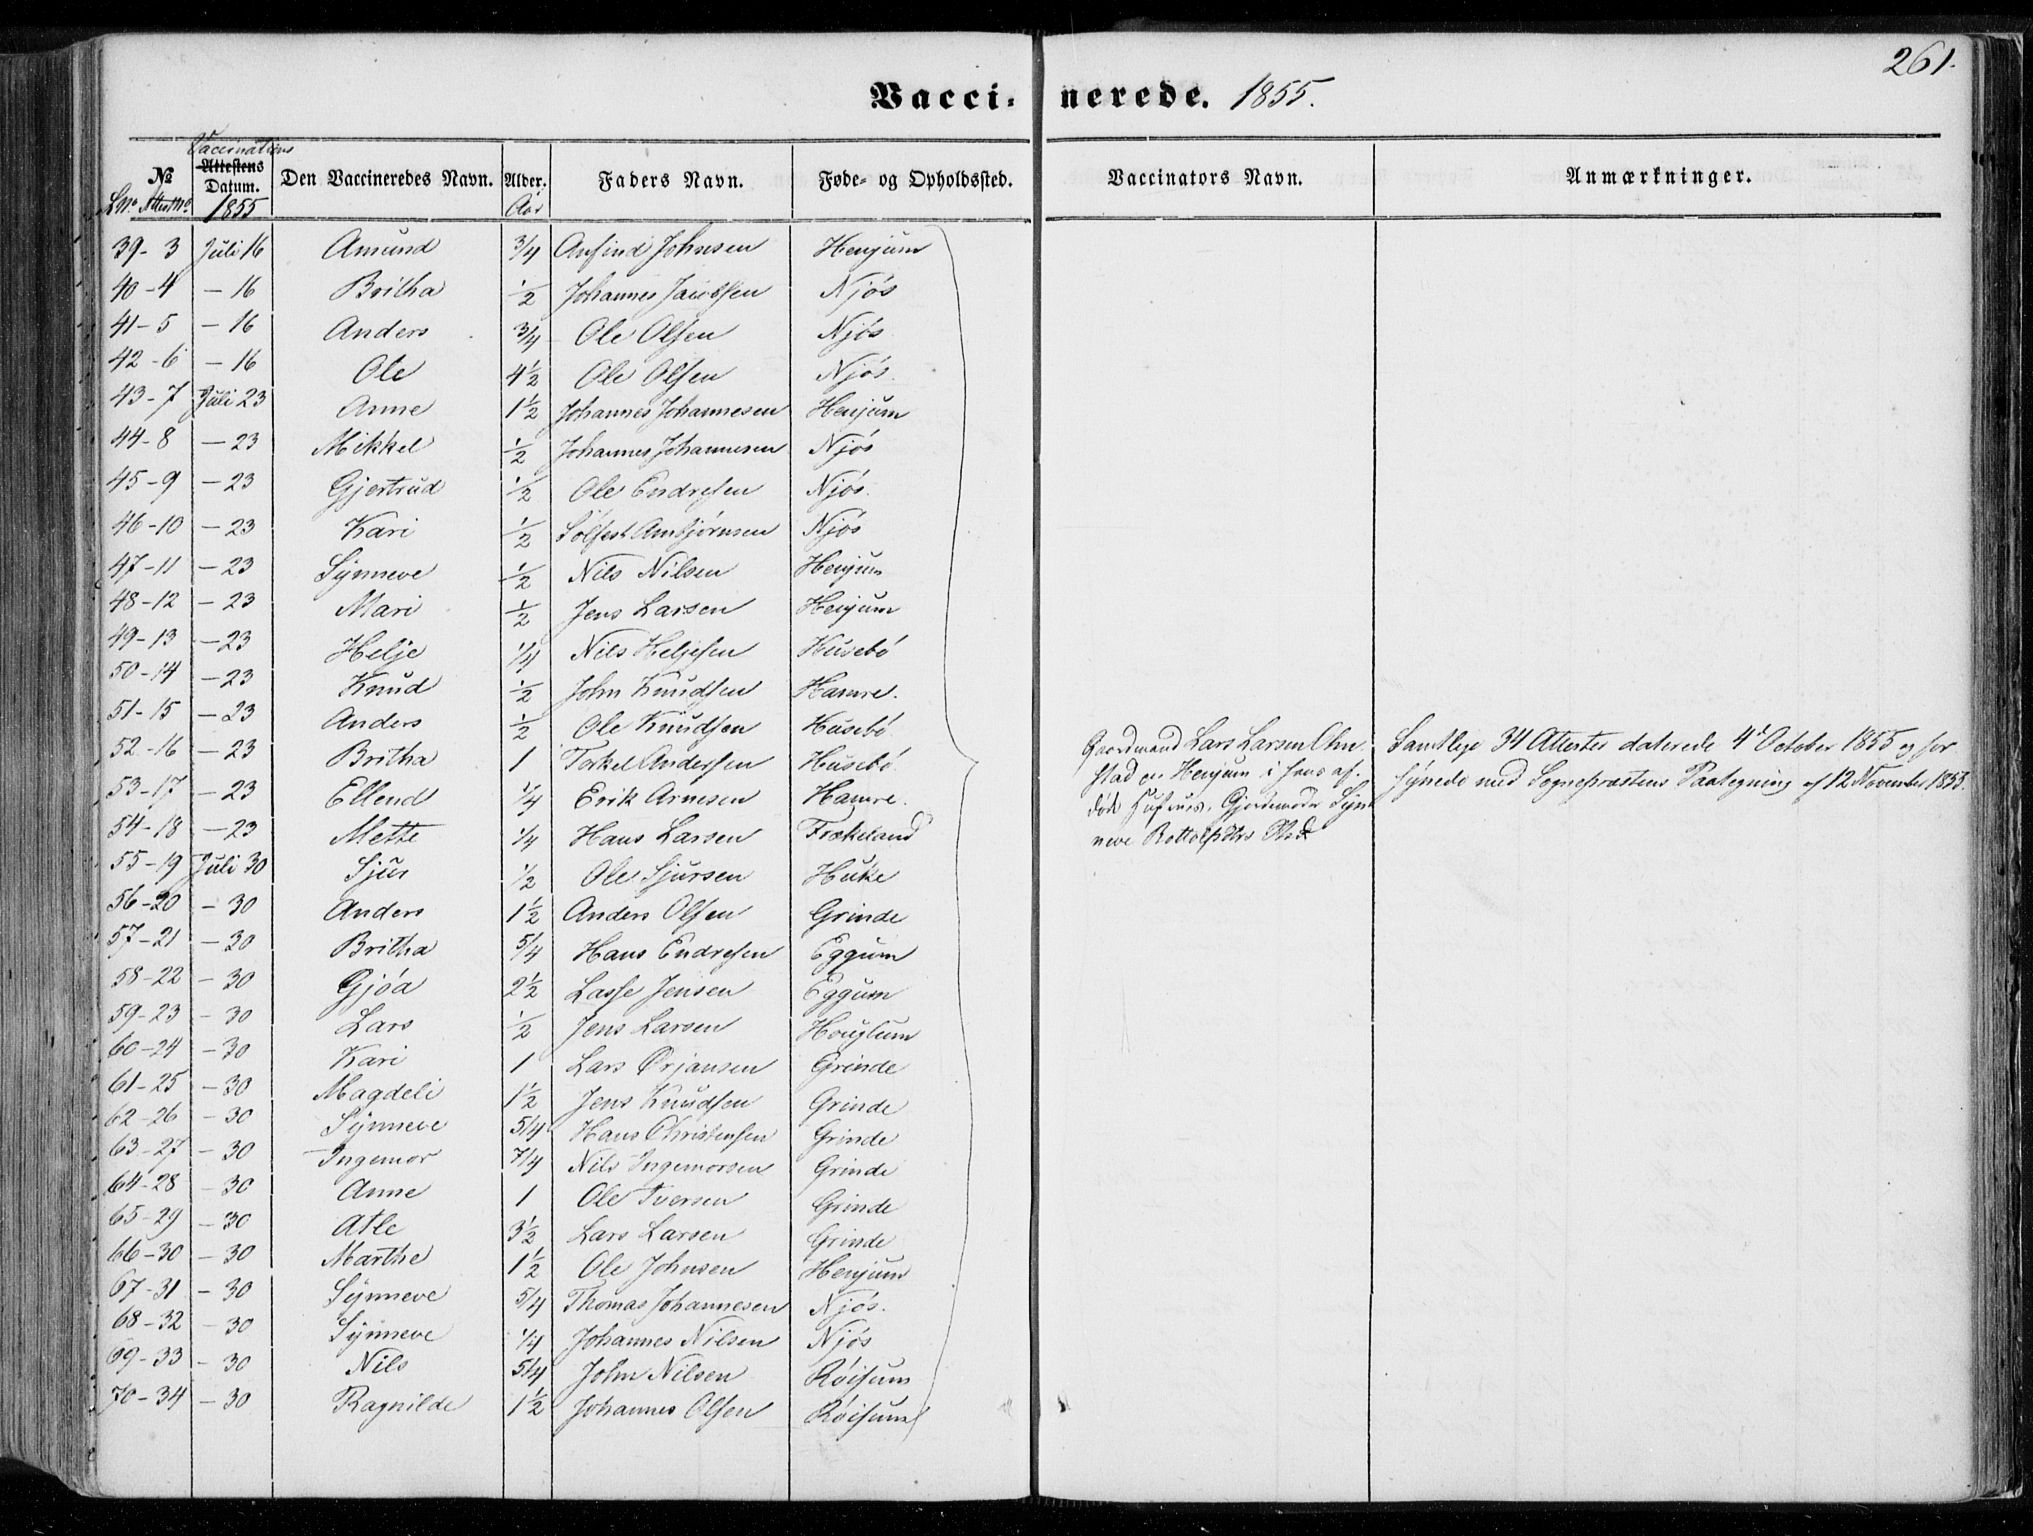 261.
Vaccinerede. 1855.
Vaccinations
№ Attestens Datum. Den Vaccineredes Navn. Alder. Faders Navn. Føde- og Opholdssted. Vaccinators Navn. Anmærkninger.
LNo Attest No 1855 Aar
39-3 Juli 16 Amund 3/4 Anfind Johnsen Henjum
40-4 - 16 Britha 1/2 Johannes Jacobsen Njøs
41-5 - 16 Anders 3/4 Ole Olsen Njøs
42-6 - 16 Ole 4 1/2 Ole Olsen Njøs
43-7 Juli 23 Anne 1 1/2 Johannes Johannesen Henjum
44-8 - 23 Mikkel 1/2 Johannes Johannesen Njøs
45-9 - 23 Gjertrud 1/2 Ole Endresen Njøs.
46-10 - 23 Kari 1/2 Sølfest Ambjørnsen Njøs
47-11 - 23 Synneve 1/2 Nils Nilsen Henjum
48-12 - 23 Mari 1/2 Jens Larsen Henjum
49-13 - 23 Helje 1/4 Nils Heljesen Husebø
50-14 - 23 Knud 1/2 John Knudsen Hamre.
51-15 - 23 Anders 1/2 Ole Knudsen Husebø
52-16 - 23 Britha 1 Torkel Andersen Husebø
53-17 - 23 Ellend 1/4 Erik Arnesen Hamre.
54-18 - 23 Mette 1/4 Hans Larsen Frækeland
55-19 Juli 30 Sjur 1/2 Ole Sjursen Huke
56-20 - 30 Anders 1 1/2 Anders Olsen Grinde
57-21 - 30 Britha 5/4 Hans Endresen Eggum
58-22 - 30 Gjøa 2 1/2 Lasse Jensen Eggum
59-23 - 30 Lars 1/2 Jens Larsen Houglum
60-24 - 30 Kari 1 Lars Ørjansen Grinde
61-25 - 30 Magdeli 1 1/2 Jens Knudsen Grinde
62-26 - 30 Synneve 5/4 Hans Christensen Grinde
63-27 - 30 Ingemor 7/4 Nils Ingemorsen Grinde
64-28 - 30 Anne 1 Ole Iversen Grinde
65-29 - 30 Atle 3 1/2 Lars Larsen Grinde
66-30 - 30 Marthe 1 1/2 Ole Johnsen Henjum
67-31 - 30 Synneve 5/4 Thomas Johannesen Njøs.
68-32 - 30 Synneve 1/4 Johannes Nilsen Njøs
69-33 - 30 Nils 5/4 John Nilsen Røisum
70-34 - 30 Ragnilde 1 1/2 Johannes Olsen Røisum
Gaardmand Lars Larsen
stad Henjum i
Gjordemoder Syn
neve
Samtlige 34 Attester daterede 4de October 1855 og for
synede med Sognepræstens Paategning af 12 November 1855.